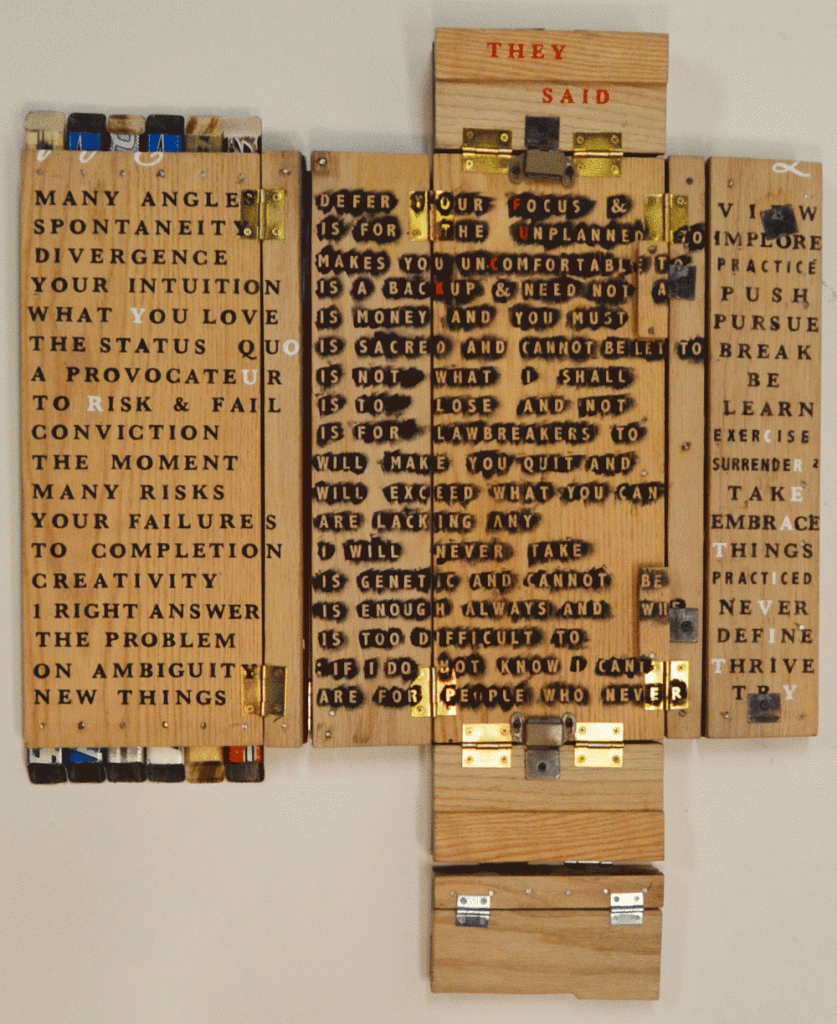 THEY
SAID
MANY ANGLES DEFER YOUR FOCUS & VIEW
SPONTANEITY IS FOR THE UNPLANNED TO IMPLORE
DIVERGENCE MAKES YOU UNCOMFORTABLE TO PRACTICE
YOUR INTUITION IS A BACKUP & NEED NOT A PUSH
WHAT YOU LOVE IS MONEY AND YOU MUST PURSUE
THE STATUS QUO IS SACRED AND CANNOT BE LET TO BREAK
A PROVOCATEUR IS NOT WHAT I SHALL BE
TO RISK & FAIL IS TO LOSE AND NOT LEARN
CONVICTION IS FOR LAWBREAKERS TO EXERCISE
THE MOMENT WILL MAKE YOU QUIT AND SURRENDER 2
MANY RISKS WILL EXCEED WHAT YOU CAN TAKE
YOUR FAILURES ARE LACKING ANY EMBRACE
TO COMPLETION I WILL NEVER TAKE THINGS
CREATIVITY IS GENETIC AND CANNOT BE PRACTICED
1 RIGHT ANSWER IS ENOUGH ALWAYS AND NEVER
THE PROBLEM IS TOO DIFFICULT TO DEFINE
ON AMBIGUITY IF I DO NOT KNOW I CANT THRIVE
NEW THINGS ARE FOR PEOPLE WHO NEVER TRY